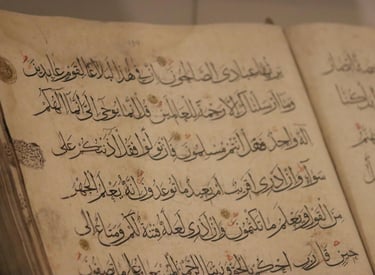 يرثها عبادي الصالحون إن في هذا لبلاغا لقوم عابدين
وما أرسلناك إلا رحمة للعالمين قل إنما يوحى إلي أنما إلهكم
إله واحد فهل أنتم مسلمون فإن تولوا فقل آذنتكم على
سواء وإن أدري أقريب أم بعيد ما توعدون إنه يعلم الجهر
من القول ويعلم ما تكتمون وإن أدري لعله فتنة لكم ومتاع إلى
حين قال رب احكم بالحق وربنا الرحمن